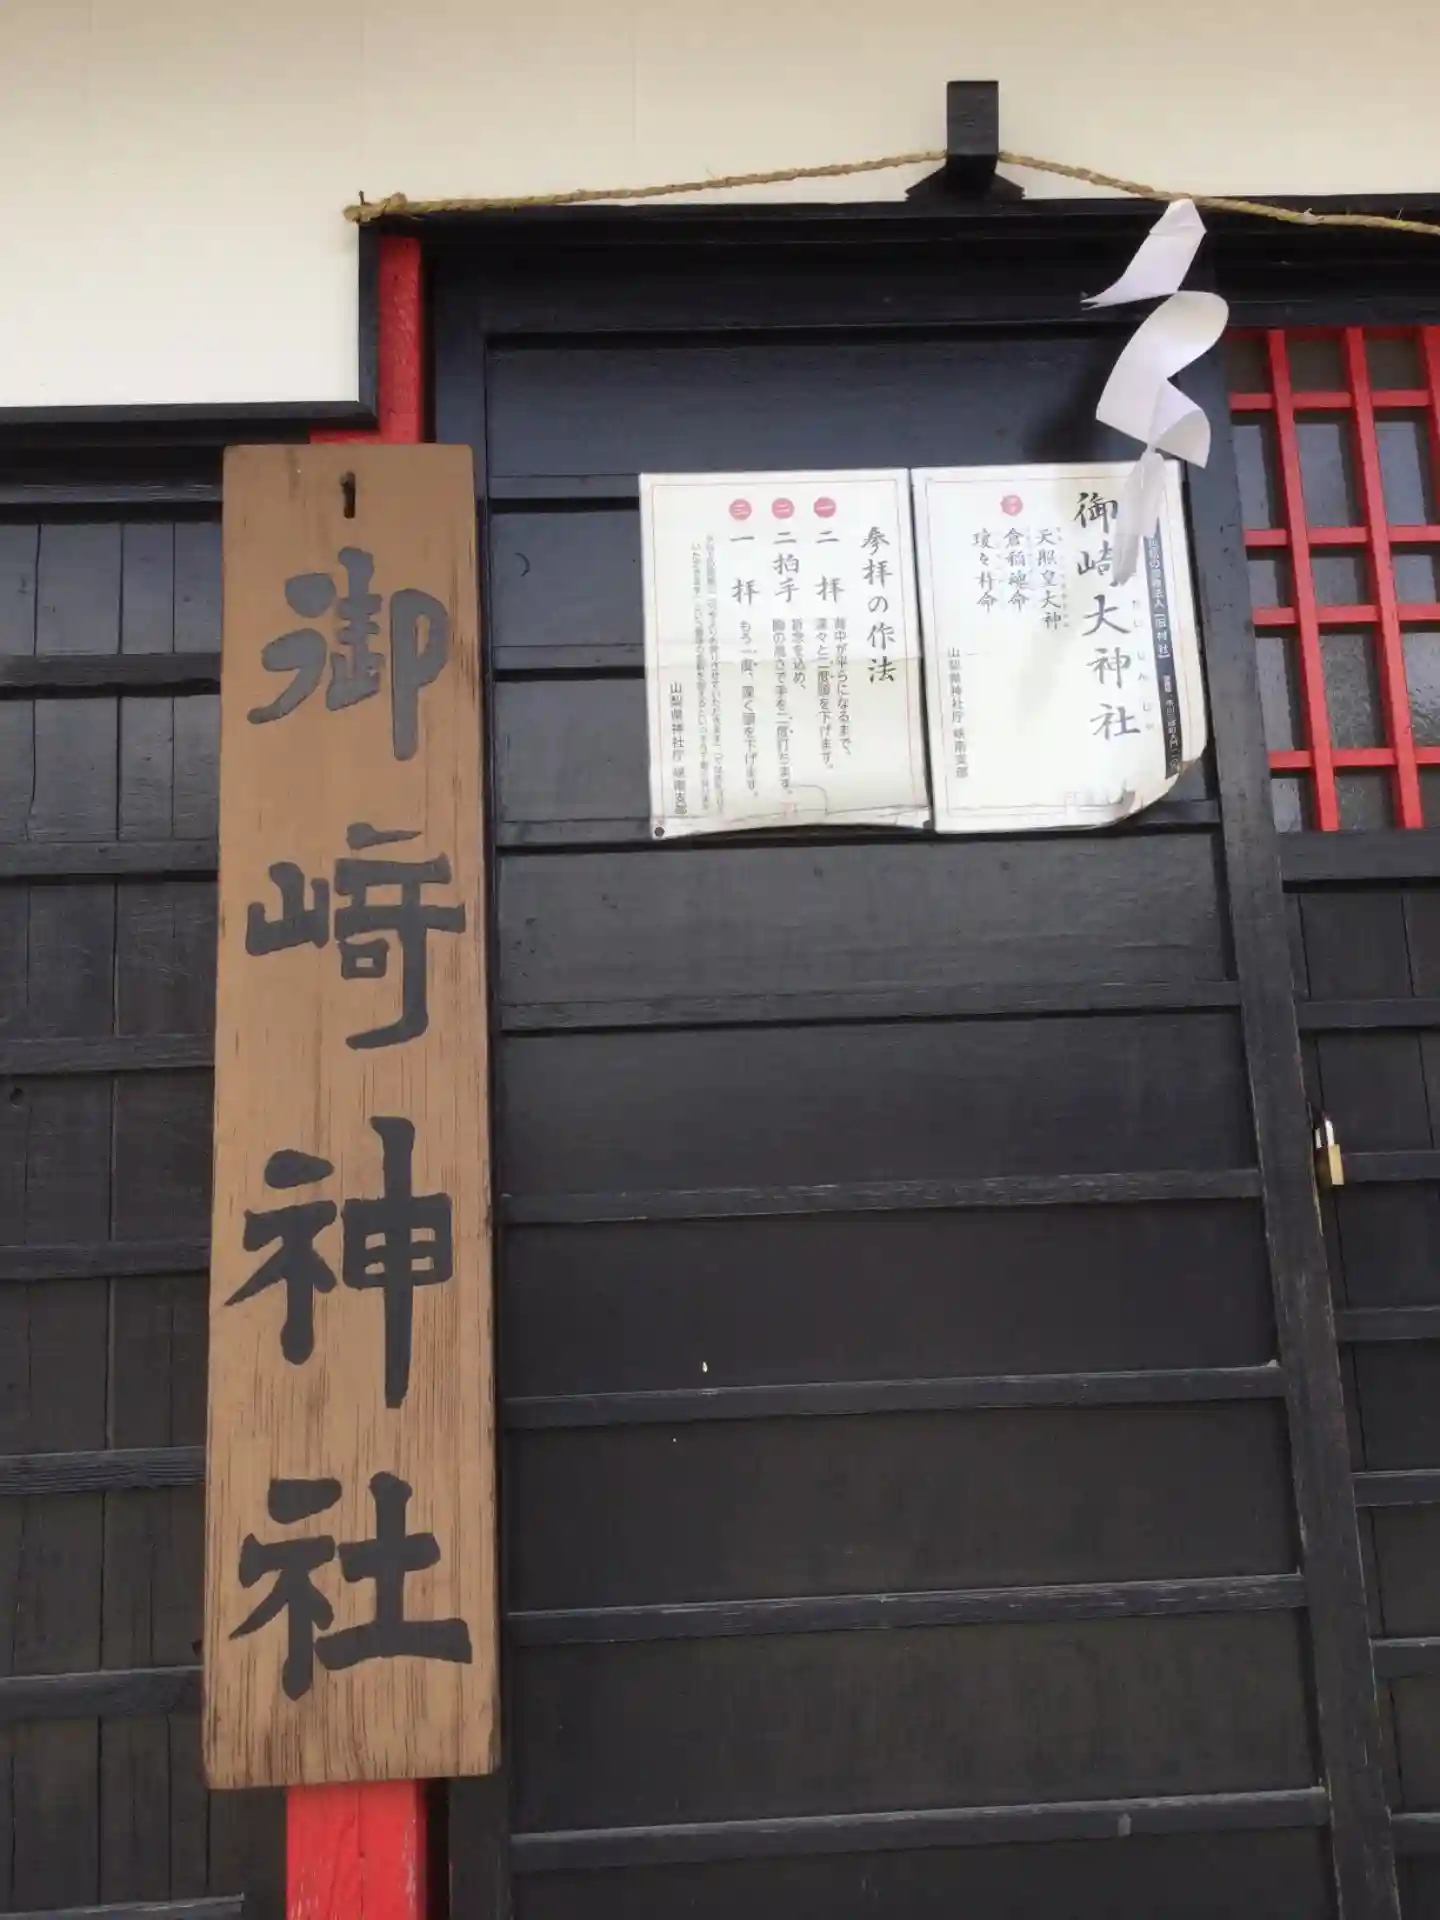 御崎神社
御崎大神社
天照皇大神
倉稲魂命
瓊々杵命
山梨県神社庁 峡南支部
参拝の作法
一 二拝
背中が平らになるまで、
深々と二度頭を下げます。
二 二拍手
祈念を込め、
胸の高さで手を二度打ちます。
三 一拝
もう一度、深く頭を下げます。
山梨県神社庁 峡南支部